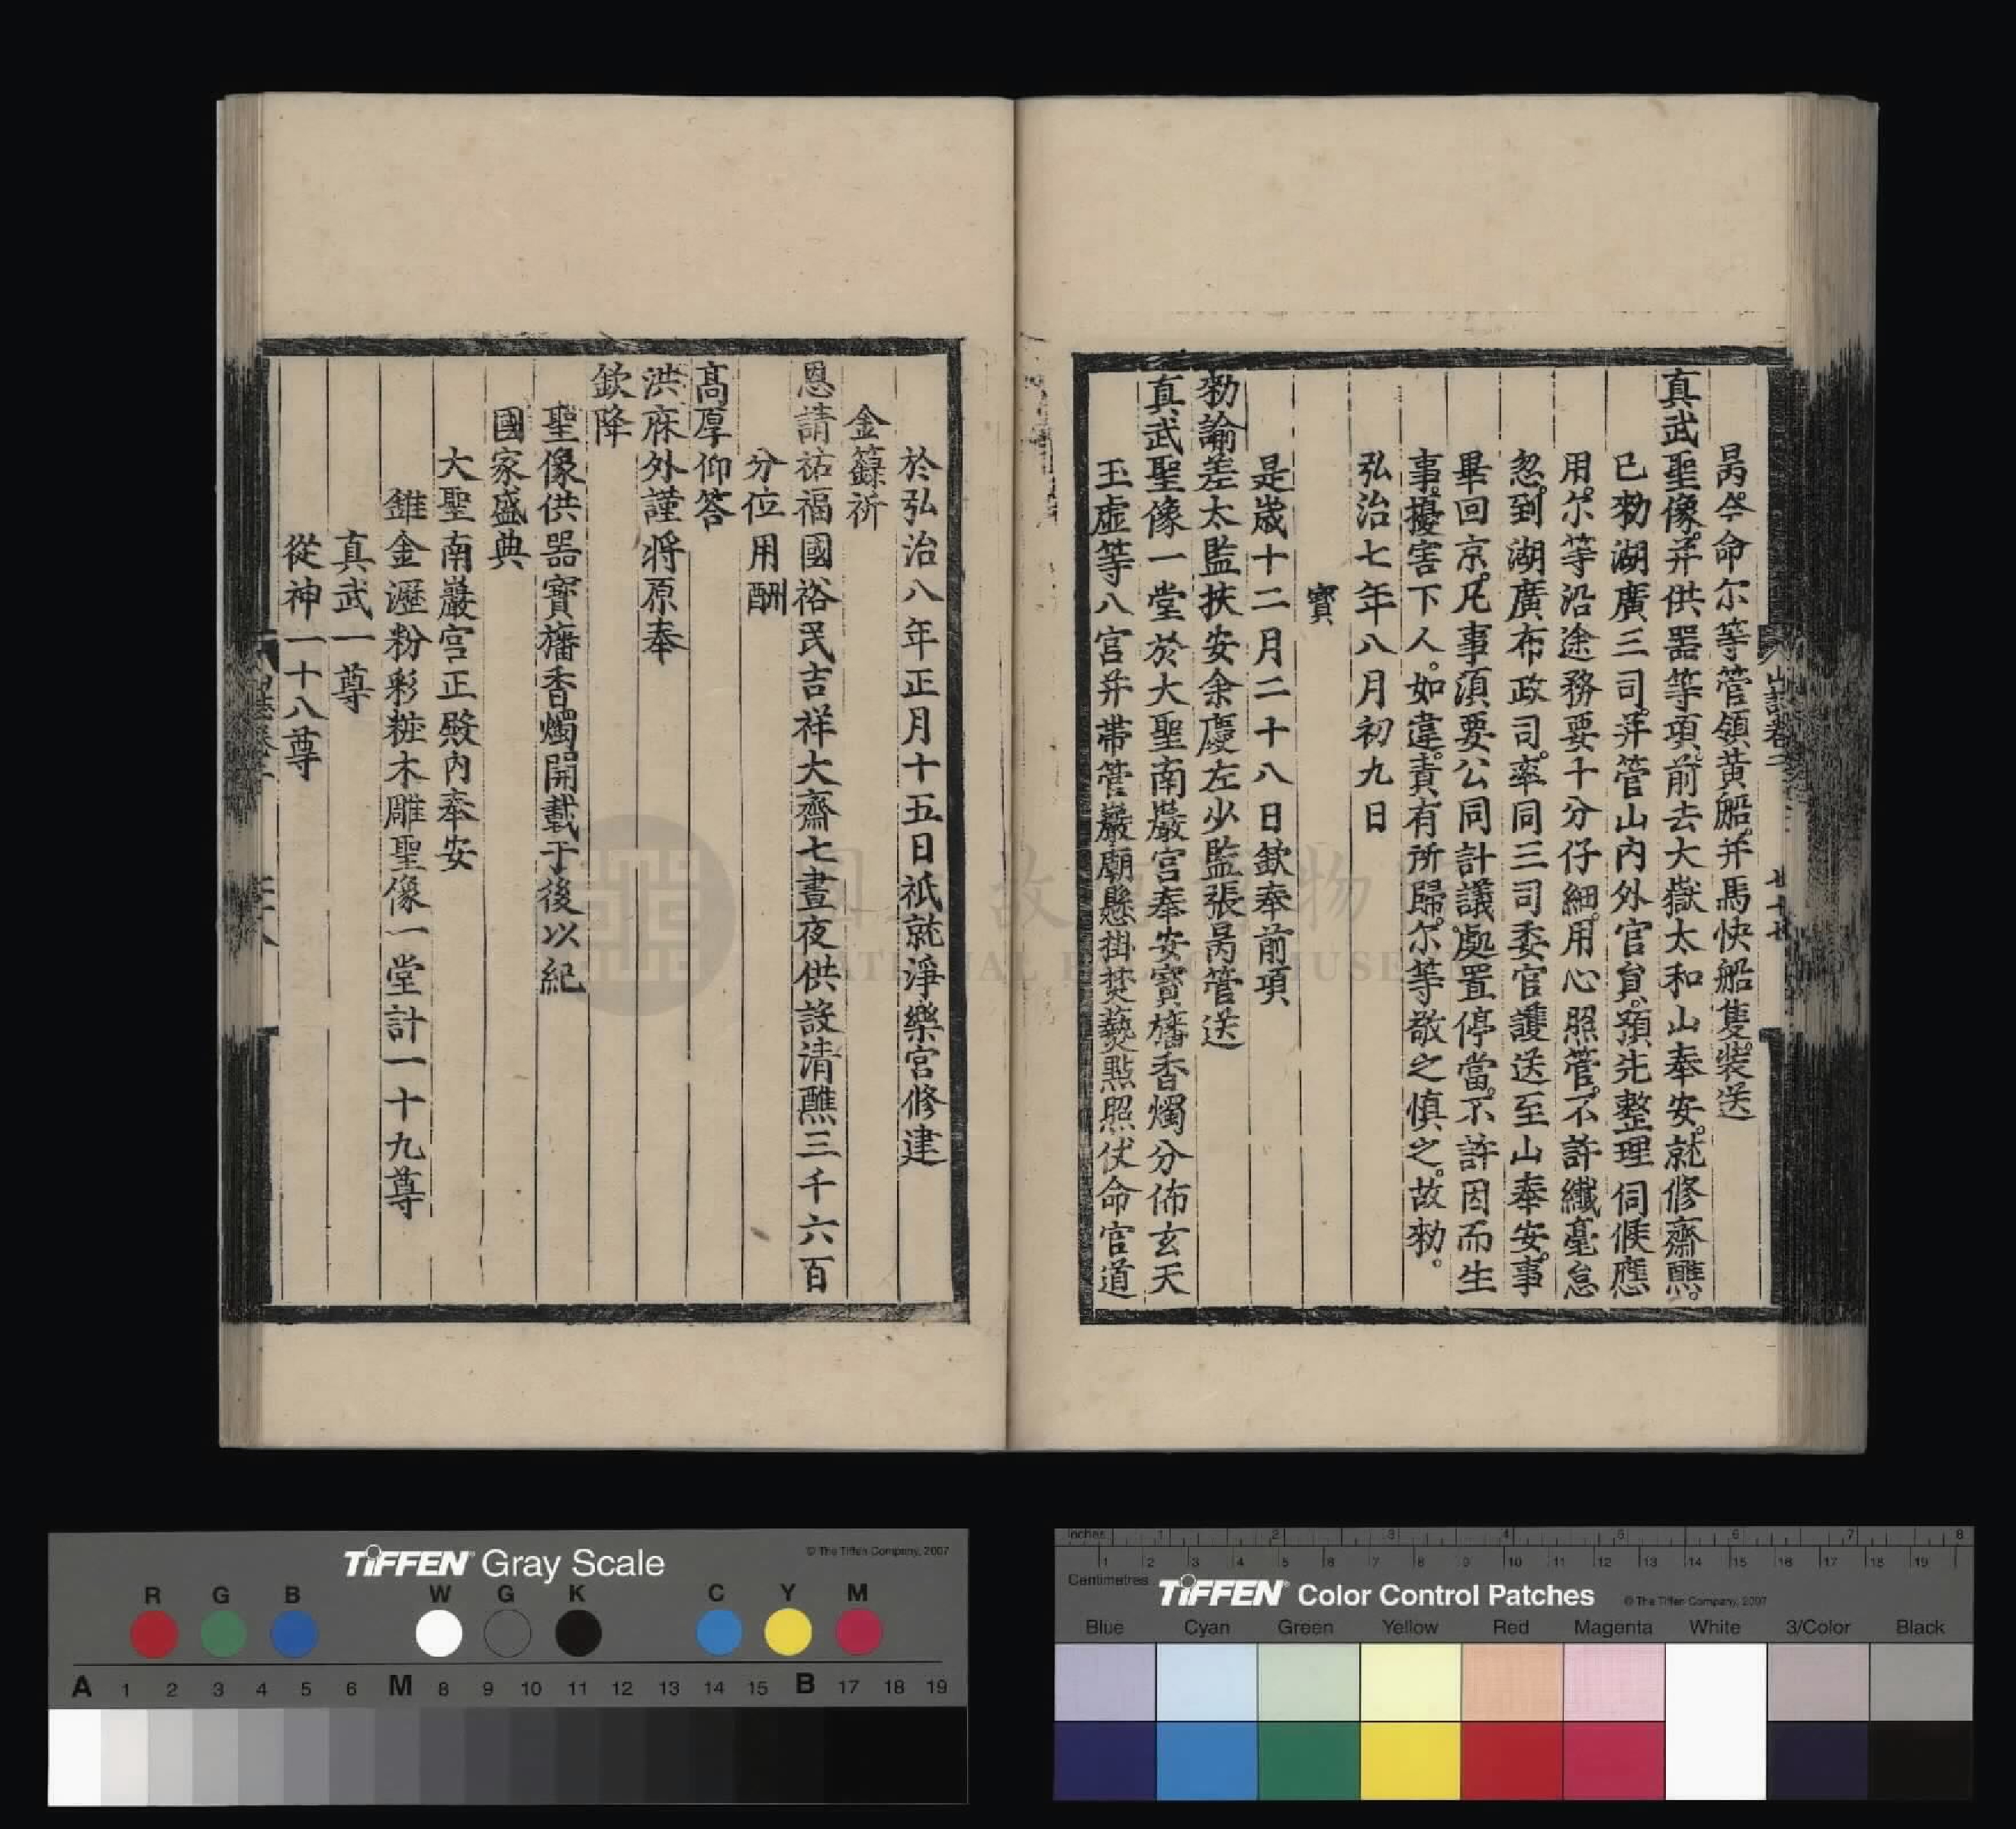 昺今命尔等管領黃船并馬快船隻裝送
真武聖像并供器等項前去大嶽太和山奉安就修齋醮。
已勑湖廣三司并管山內外官員預先整理伺候應
用尔等沿途務要十分仔細用心照管不許纖毫怠
忽到湖廣布政司率同三司委官護送至山奉安事
畢回京凡事須要公同計議處置停當不許因而生
事擾害下人。如違責有所歸尔等敬之慎之故勑。
弘治七年八月初九日
寶
是歲十二月二十八日欽奉前項
勑諭差太監扶安余慶左少監張昺管送
真武聖像一堂於大聖南巖宮奉安寶旛香燭分佈玄天
玉虛等八宮并帶管巖廟懸掛焚爇點照伏命官道
於弘治八年正月十五日祇就淨樂宮修建
金籙祈
恩請祐福國裕民吉祥大齋七晝夜供設清醮三千六百
分位用酬
高厚仰答
洪庥外謹將原奉
欽降
聖像供器寶旛香燭開載于後以紀
國家盛典
大聖南巖宮正殿內奉安
錐金瀝粉彩粧木雕聖像一堂計一十九尊
真武一尊
從神一十八尊
國立故宮博物院
NATIONAL PALACE MUSEUM
TIFFEN Gray Scale
© The Tiffen Company, 2007
R G B W G K C Y M
A 1 2 3 4 5 6 M 8 9 10 11 12 13 14 15 B 17 18 19
Inches 1 2 3 4 5 6 7 8
1 2 3 4 5 6 7 8 9 10 11 12 13 14 15 16 17 18 19
Centimetres
TIFFEN Color Control Patches
© The Tiffen Company, 2007
Blue Cyan Green Yellow Red Magenta White 3/Color Black